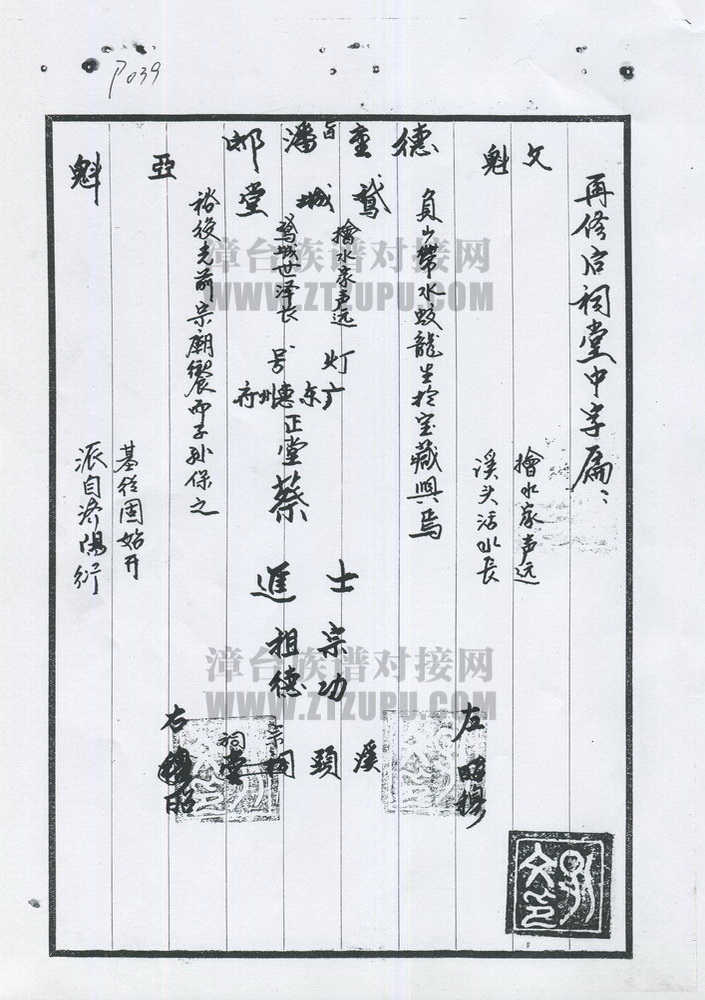 P039
再修启祠堂中字扁:
檜水家声远
溪头活水长
文魁
德重鹅城
旨潘
邮堂
亞魁
負山帶水蛟龍生於宝藏興焉
檜水家声远
鵞城世泽长
裕後光前宗廟饗而子孙保之
灯号
广东惠州府
正堂蔡
基從固始开
派自济陽衍
進士
宗功
祖德
左昭穆
溪頭
宗祠
祠堂
右昭
漳台族谱对接网
WWW.ZTZUPU.COM
漳台族谱对接网
WWW.ZTZUPU.COM